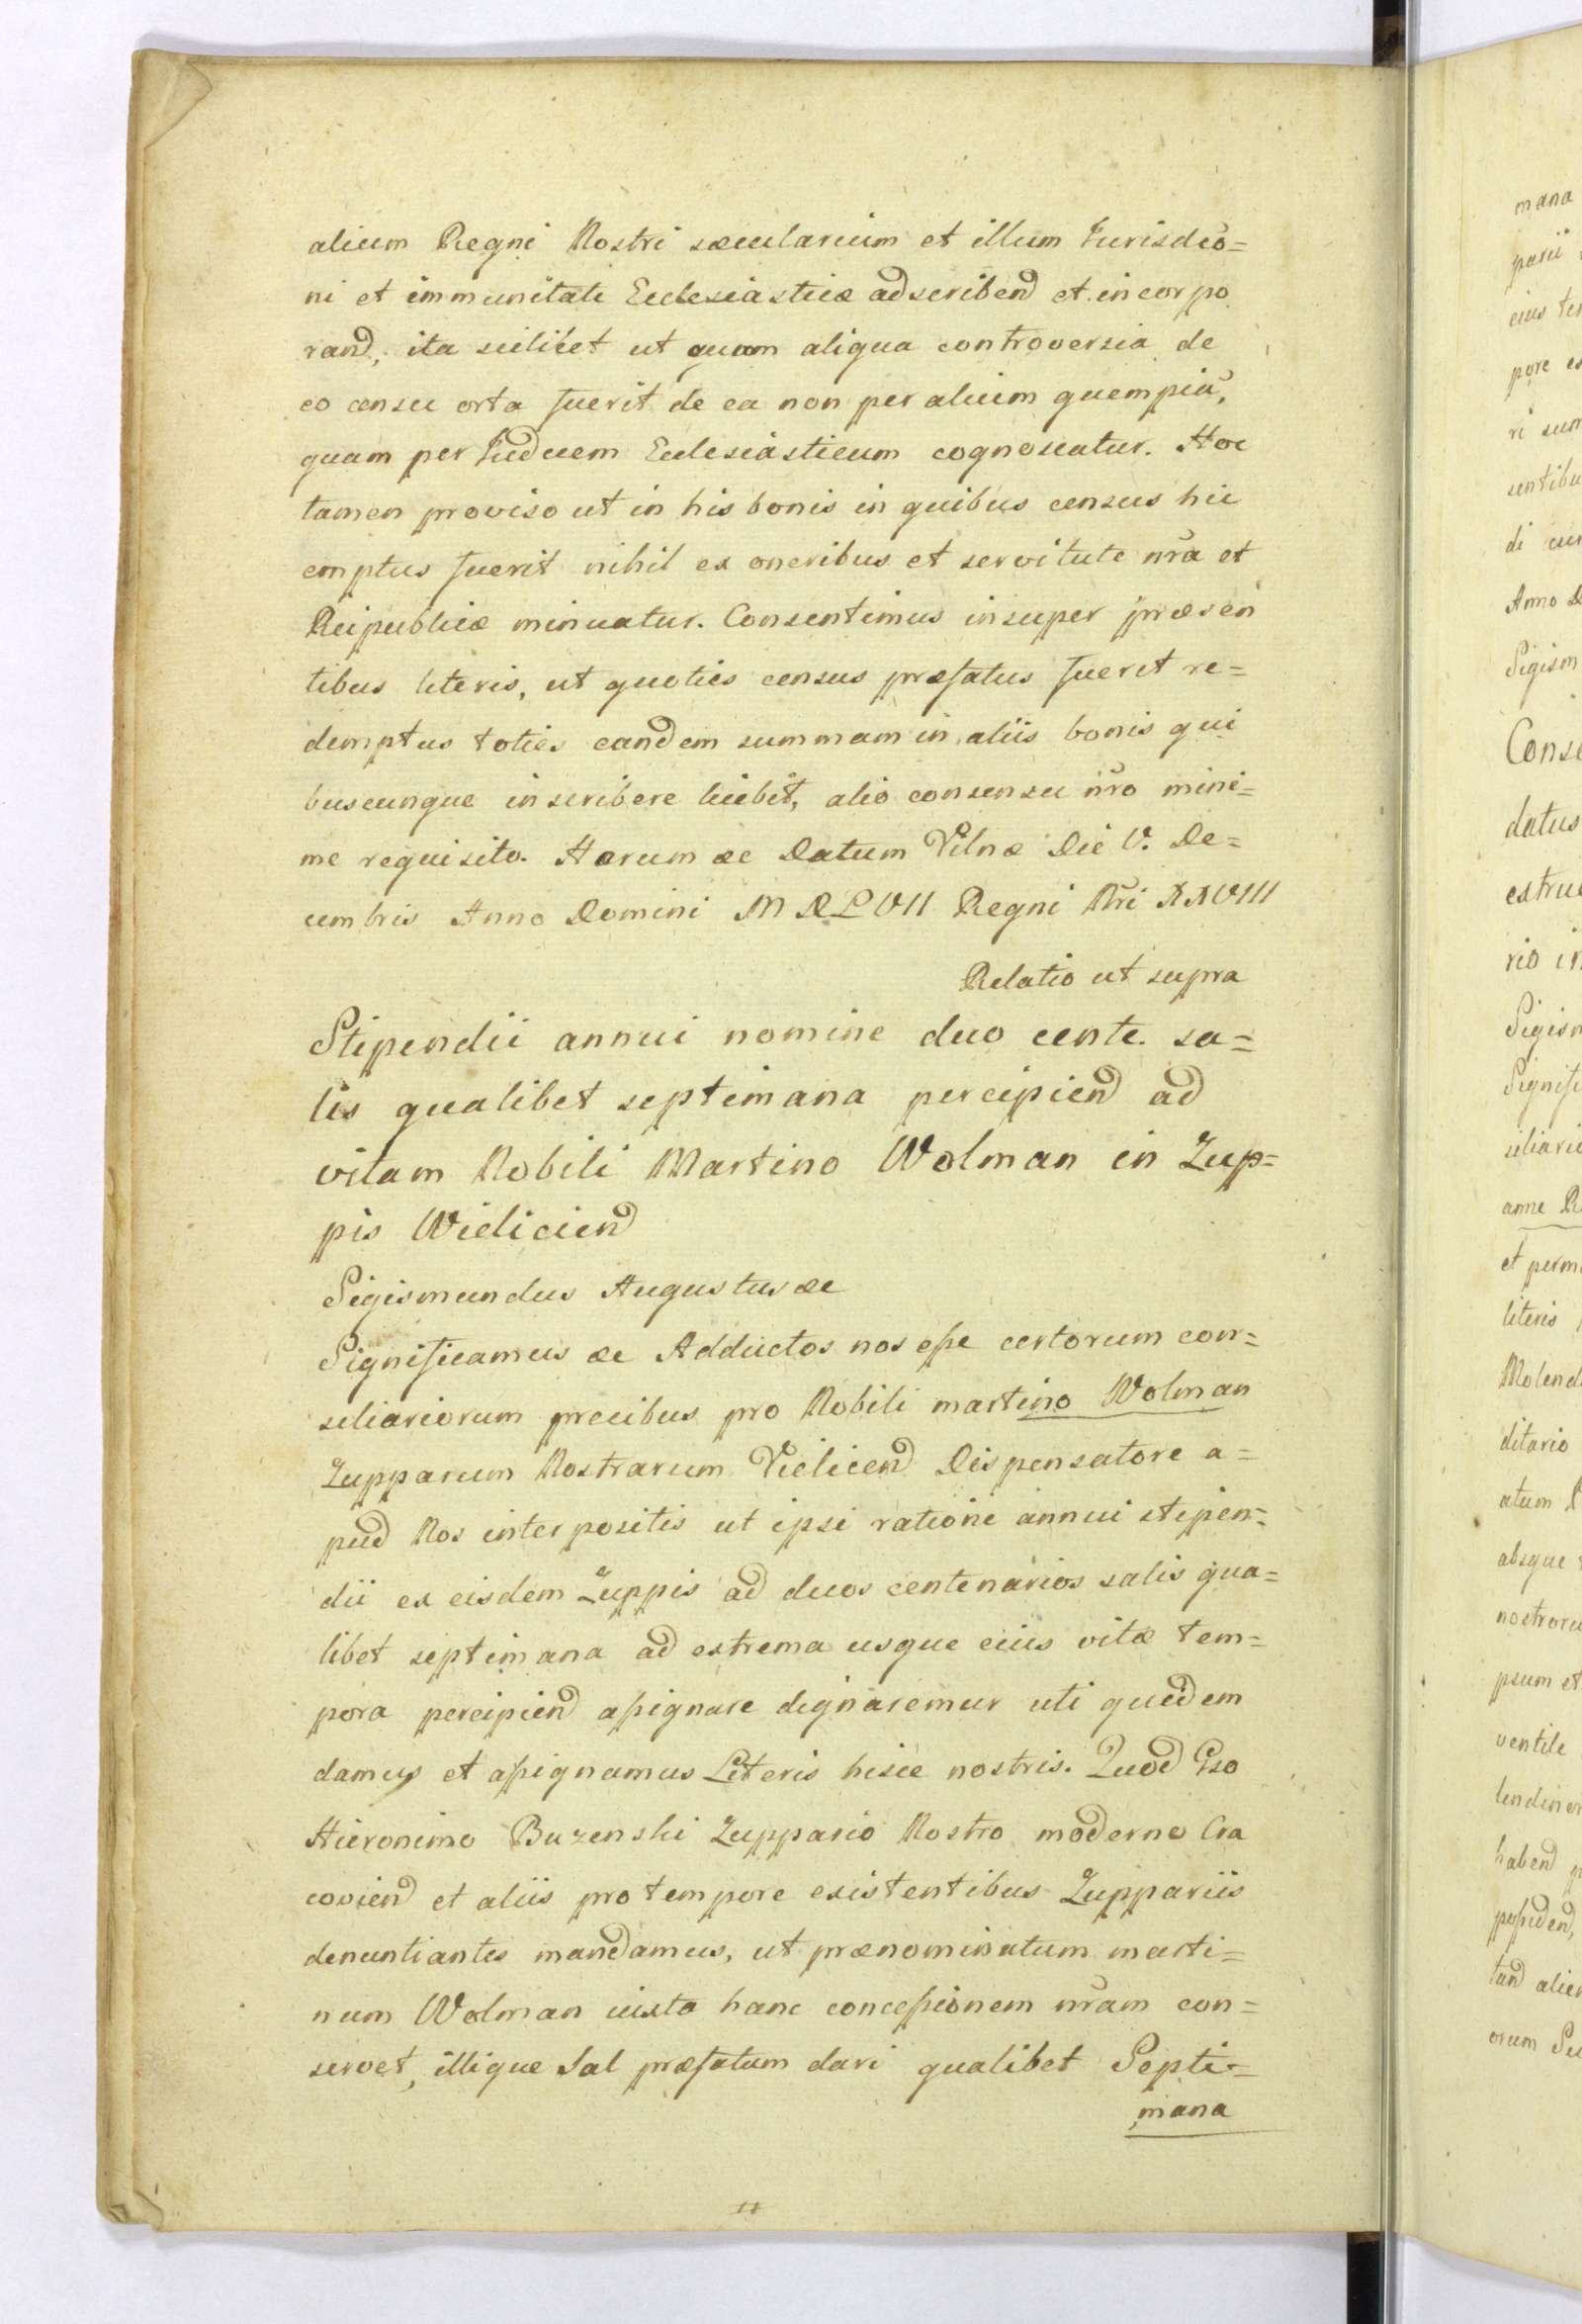 alium Regni Nostri sæcularium et illum Jurisdcõ=
ni et immunitati Ecclesiasticæ adscribend et incorpo
rand, ita scilicet ut quum aliqua controversia de
eo censu orta fuerit de ea non per alium quempiã,
quam per Judicem Ecclesiasticum cognoscatur. Hoc
tamen proviso ut in his bonis in quibus census hic
emptus fuerit nihil ex oneribus et servitute nr̃a et
Reipublicæ minuatur. Consentimus insuper præsen
tibus literis, ut quoties census præfatus fuerit re=
demptus toties eandem summam in aliis bonis qui
buscunque inscribere licebit, alio consensu nr̃o mini=
me requisito. Harum &c Datum Vilnæ Die V. De=
cembris Anno Domini MDLVII Regni Nr̃i XXVIII
Relatio ut supra
Stipendii annui nomine duo cente. sa=
lis qualibet septimana percipiend ad
vitam Nobili Martino Wolman in Zup=
pis Wieliciend
Sigismundus Augustus &c
Significamus &c Adductos nos esse certorum con=
siliariorum precibus pro Nobili martino Wolman
Zupparum Nostrarum Vielicend Dispensatore a=
pud Nos interpositis ut ipsi ratione annui stipen=
dii ex eisdem Zuppis ad duos centenarios salis qua=
libet septimana ad extrema usque eius vitæ tem=
pora percipiend assignare dignaremur uti quidem
damus et assignamus Literis hisce nostris. Quod Gso
Hieronimo Buzenski Zuppario Nostro moderno Cra
coviend et aliis pro tempore existentibus Zuppariis
denuntiantes mandamus, ut prænominatum marti=
num Wolman iuxta hanc concessionem nr̃am con=
servet, illique Sal præfatum dari qualibet Septi=
mana
mana
parii
eius te
pore
ri sum
sentibu
di cui
Anno D
Sigism
Cons
datus
extru
rio in
Sigism
Signifi
siliario
anne R
et perm
literis
Molend
ditario
atum
absque
nostroru
psum et
ventile
lendinor
habend
possidend,
tand alie
orum Su